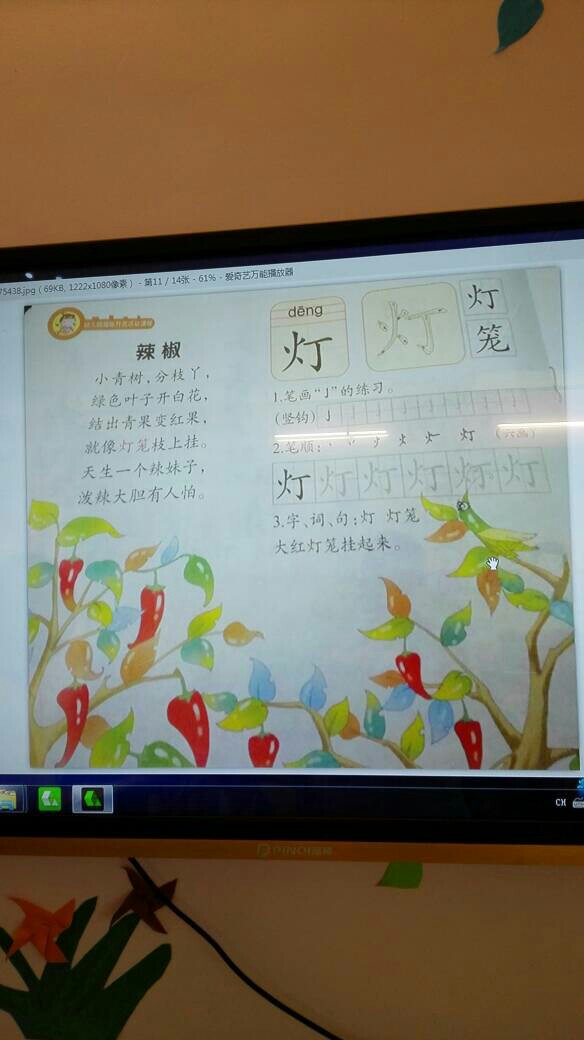 75438.jpg ( 69KB, 1222x1080像素 ) - 第11 / 14张 - 61% - 爱奇艺万能播放器
辣椒
小青树，分枝丫，
绿色叶子开白花，
结出青果变红果，
就像灯笼枝上挂。
天生一个辣妹子，
泼辣大胆有人怕。
dēng
灯
灯
灯
笼
1.笔画“亅”的练习。
(竖钩) 亅
2.笔顺：
灯 (六画)
灯 灯 灯 灯 灯 灯
3.字、词、句：灯 灯笼
大红灯笼挂起来。
CH
PINCH